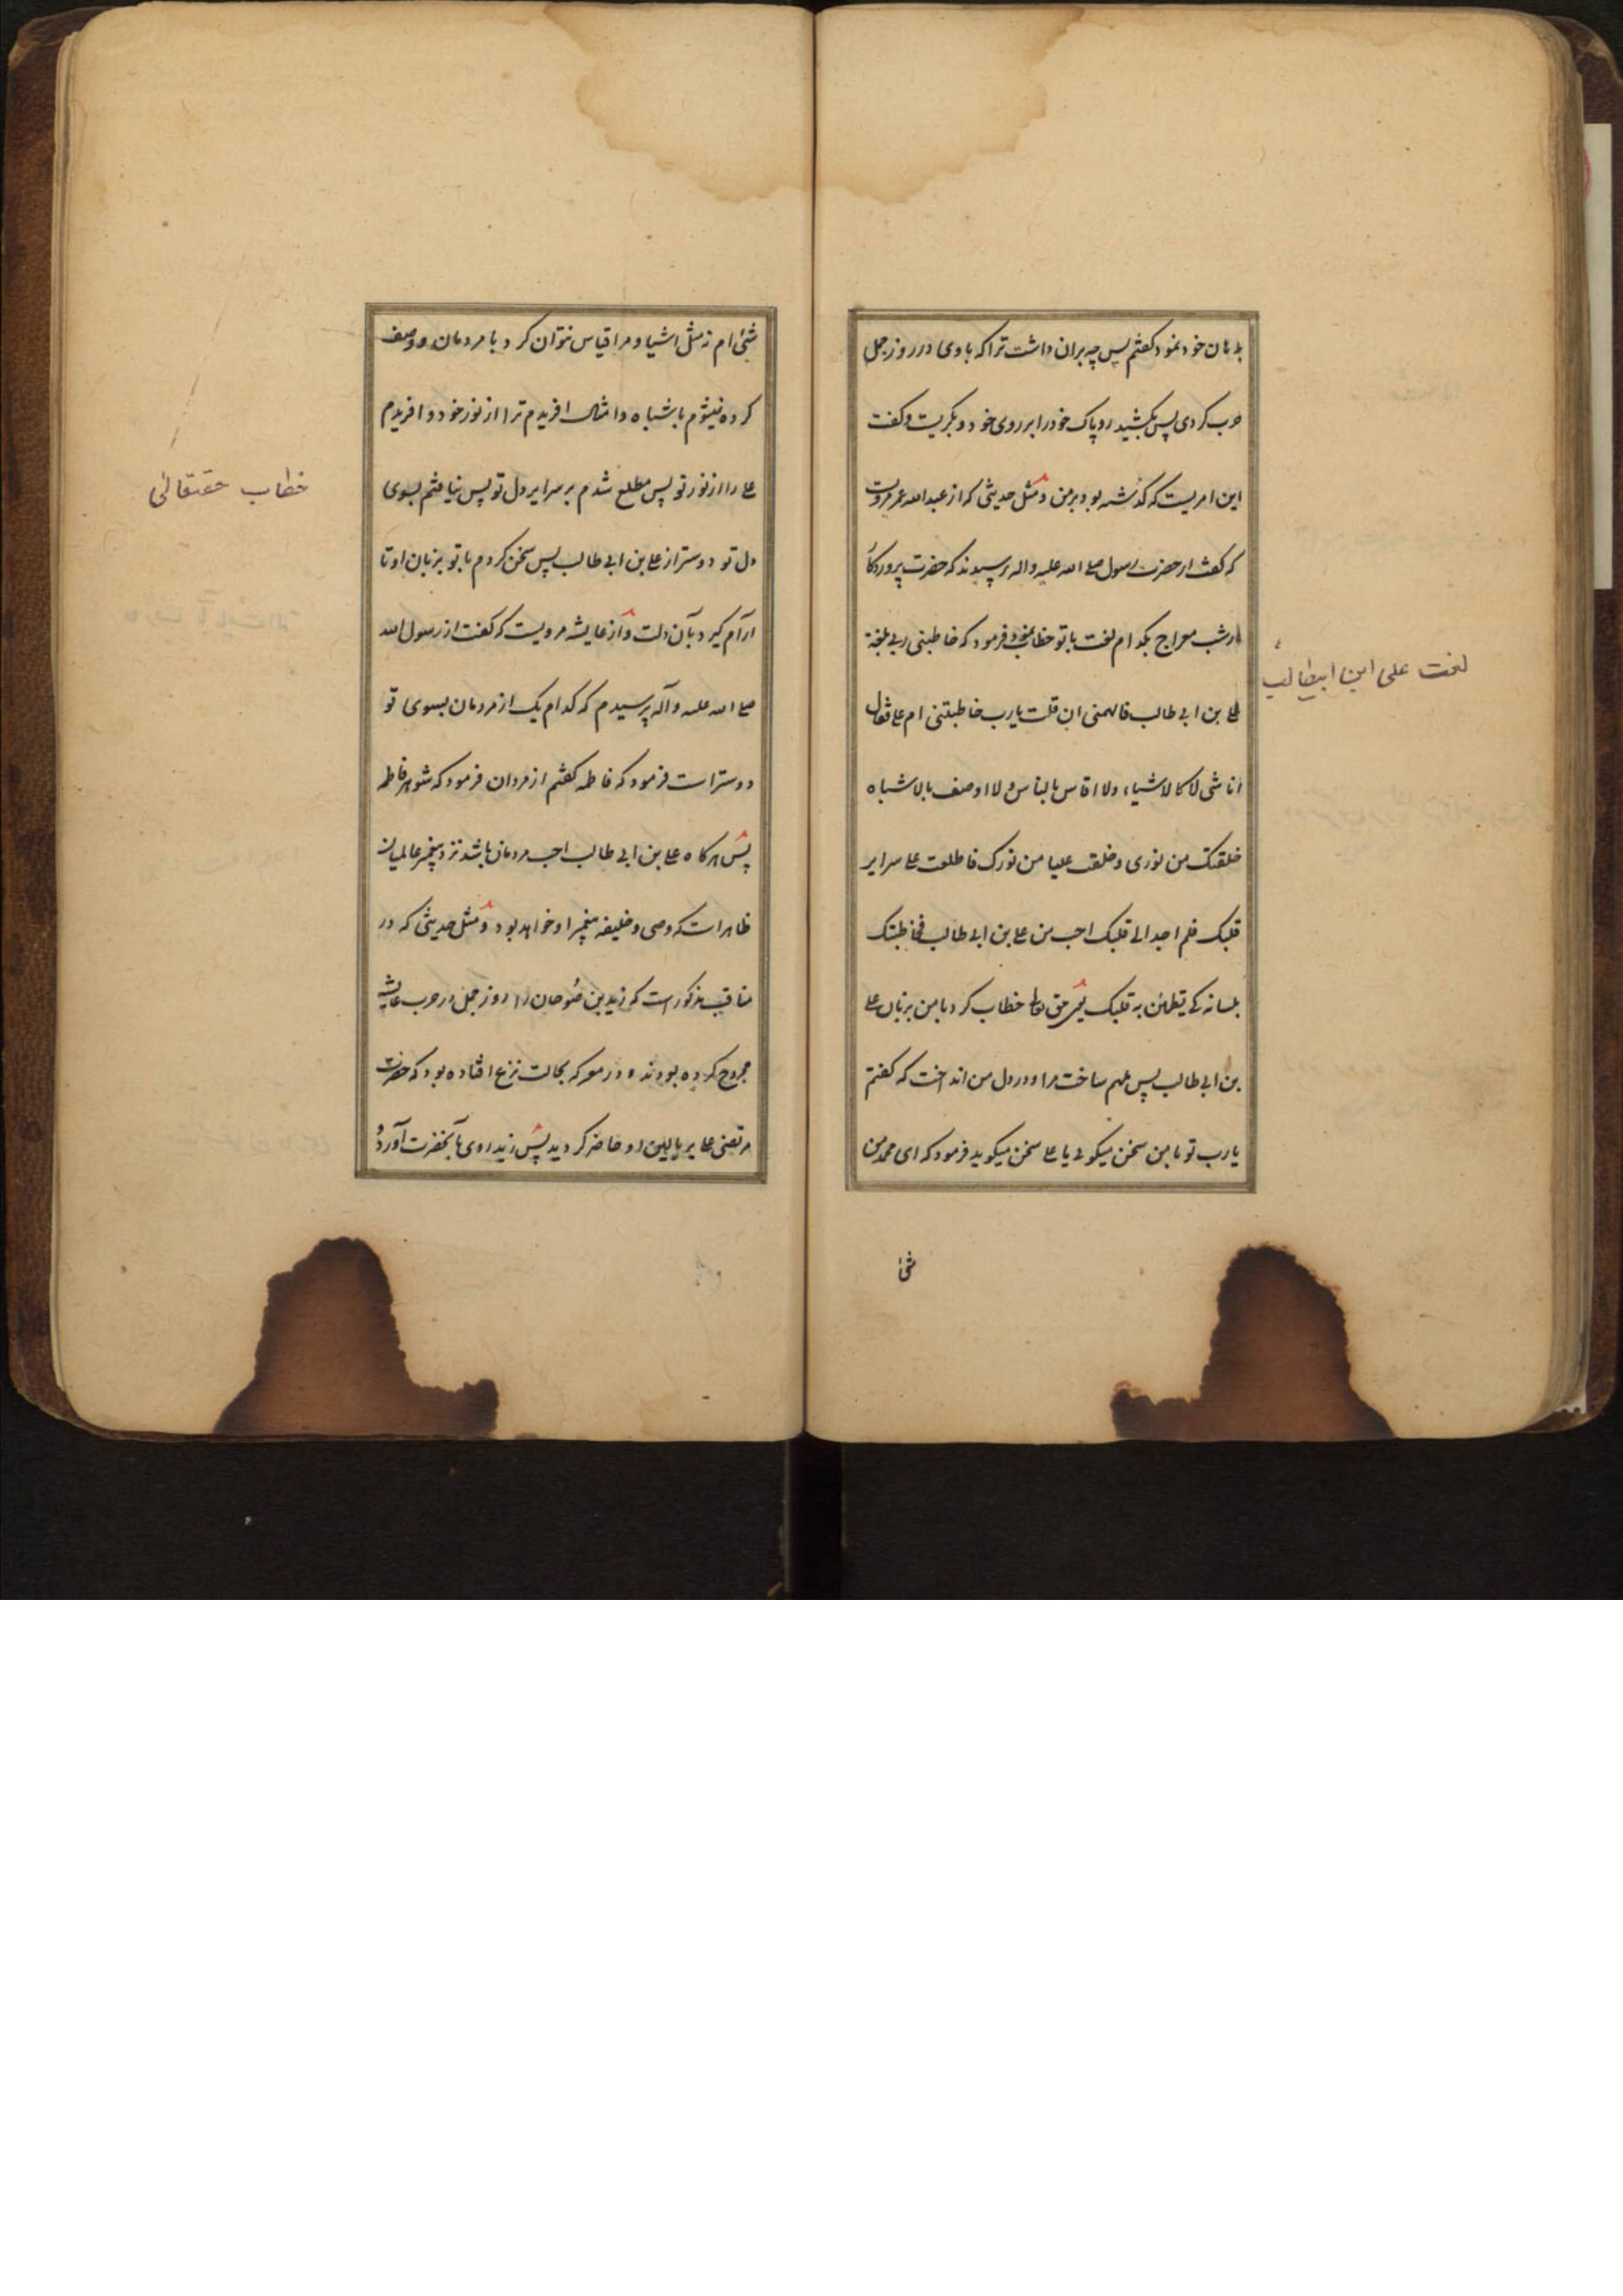 بدهان خود نمود کفتم پس چه بران داشت ترا که باوی در روز جمل
حرب کردی پس بکشید روپاک خود را بر روی خود و بکریست و کفت
این امریست که کذشته بود بر من و مثل حدیثی که از عبد الله عمر مرویست
که کفت از حضرت رسول صلی الله علیه و اله پرسیدند که حضرت پروردکار
در شب معراج بکدام لغت با تو خطاب نمود فرمود که خاطبنی ربی بلغة
علی بن ابی طالب فالهمنی ان قلت یا رب خاطبتنی ام علی فقال
انا شی لا کالاشیاء ولا اقاس بالناس ولا اوصف بالاشباه
خلقتک من نوری و خلقت علیا من نورک فاطلعت علی سرایر
قلبک فلم اجد الی قلبک احب من علی بن ابی طالب فخاطبتک
بلسانه کی یطمئن به قلبک یعنی حق تعالی خطاب کرد با من بزبان علی
بن ابی طالب پس ملهم ساخت مرا و در دل من انداخت که کفتم
یا رب تو با من سخن میکوئی یا علی سخن میکوید فرمود که ای محمد من
شئ
لغت علی ابن ابیطالب
شئ ام نه مثل اشیا و مرا قیاس نتوان کرد با مردمان و وصف
کرده نیشوم باشباه و امثال افریدم ترا از نور خود و افریدم
علی را از نور تو پس مطلع شدم بر سرایر دل تو پس نیافتم بسوی
دل تو دوستر از علی بن ابی طالب پس سخن کردم با تو بزبان او تا
ارام کیرد بآن دلت و از عایشه مرویست که کفت از رسول الله
صلی الله علیه و آله پرسیدم که کدام یک از مردمان بسوی تو
دوستر است فرمود که فاطمه کفتم از مردان فرمود که شوهر فاطمه
پس هر کاه علی بن ابی طالب احب مردمان باشد نزد پیغمبر عالمیان
ظاهر است که وصی و خلیفه پیغمبر او خواهد بود و مثل حدیثی که در
مناقب مذکور است که زید بن صوحان را روز جمل در حرب عایشه
مجروح کرده بودند و در معرکه بحالت نزع افتاده بود که حضرت
مرتضی علی بر بالین او حاضر کردید پس زید روی بآنحضرت آورد و
خطاب حقتعالی